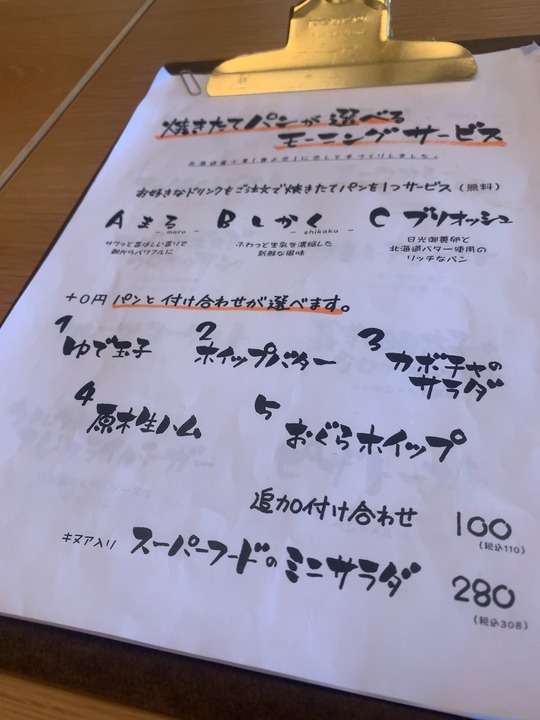 焼きたてパンが選べる
モーニングサービス
お好きなドリンクをご注文で焼きたてパンを1つサービス（無料）
A まる B しかく C ブリオッシュ
maru shikaku
サクッと香ばしい香りで
朝からパワフルに
ふわっと生乳を濃縮した
新鮮な風味
日光御養卵と
北海道バター使用の
リッチなパン
+0円 パンと付け合わせが選べます。
1 ゆで玉子
2 ホイップバター
3 カボチャの
サラダ
4 原木生ハム
5 おぐらホイップ
追加付け合わせ 100
(税込110)
キヌア入り スーパーフードのミニサラダ 280
(税込308)